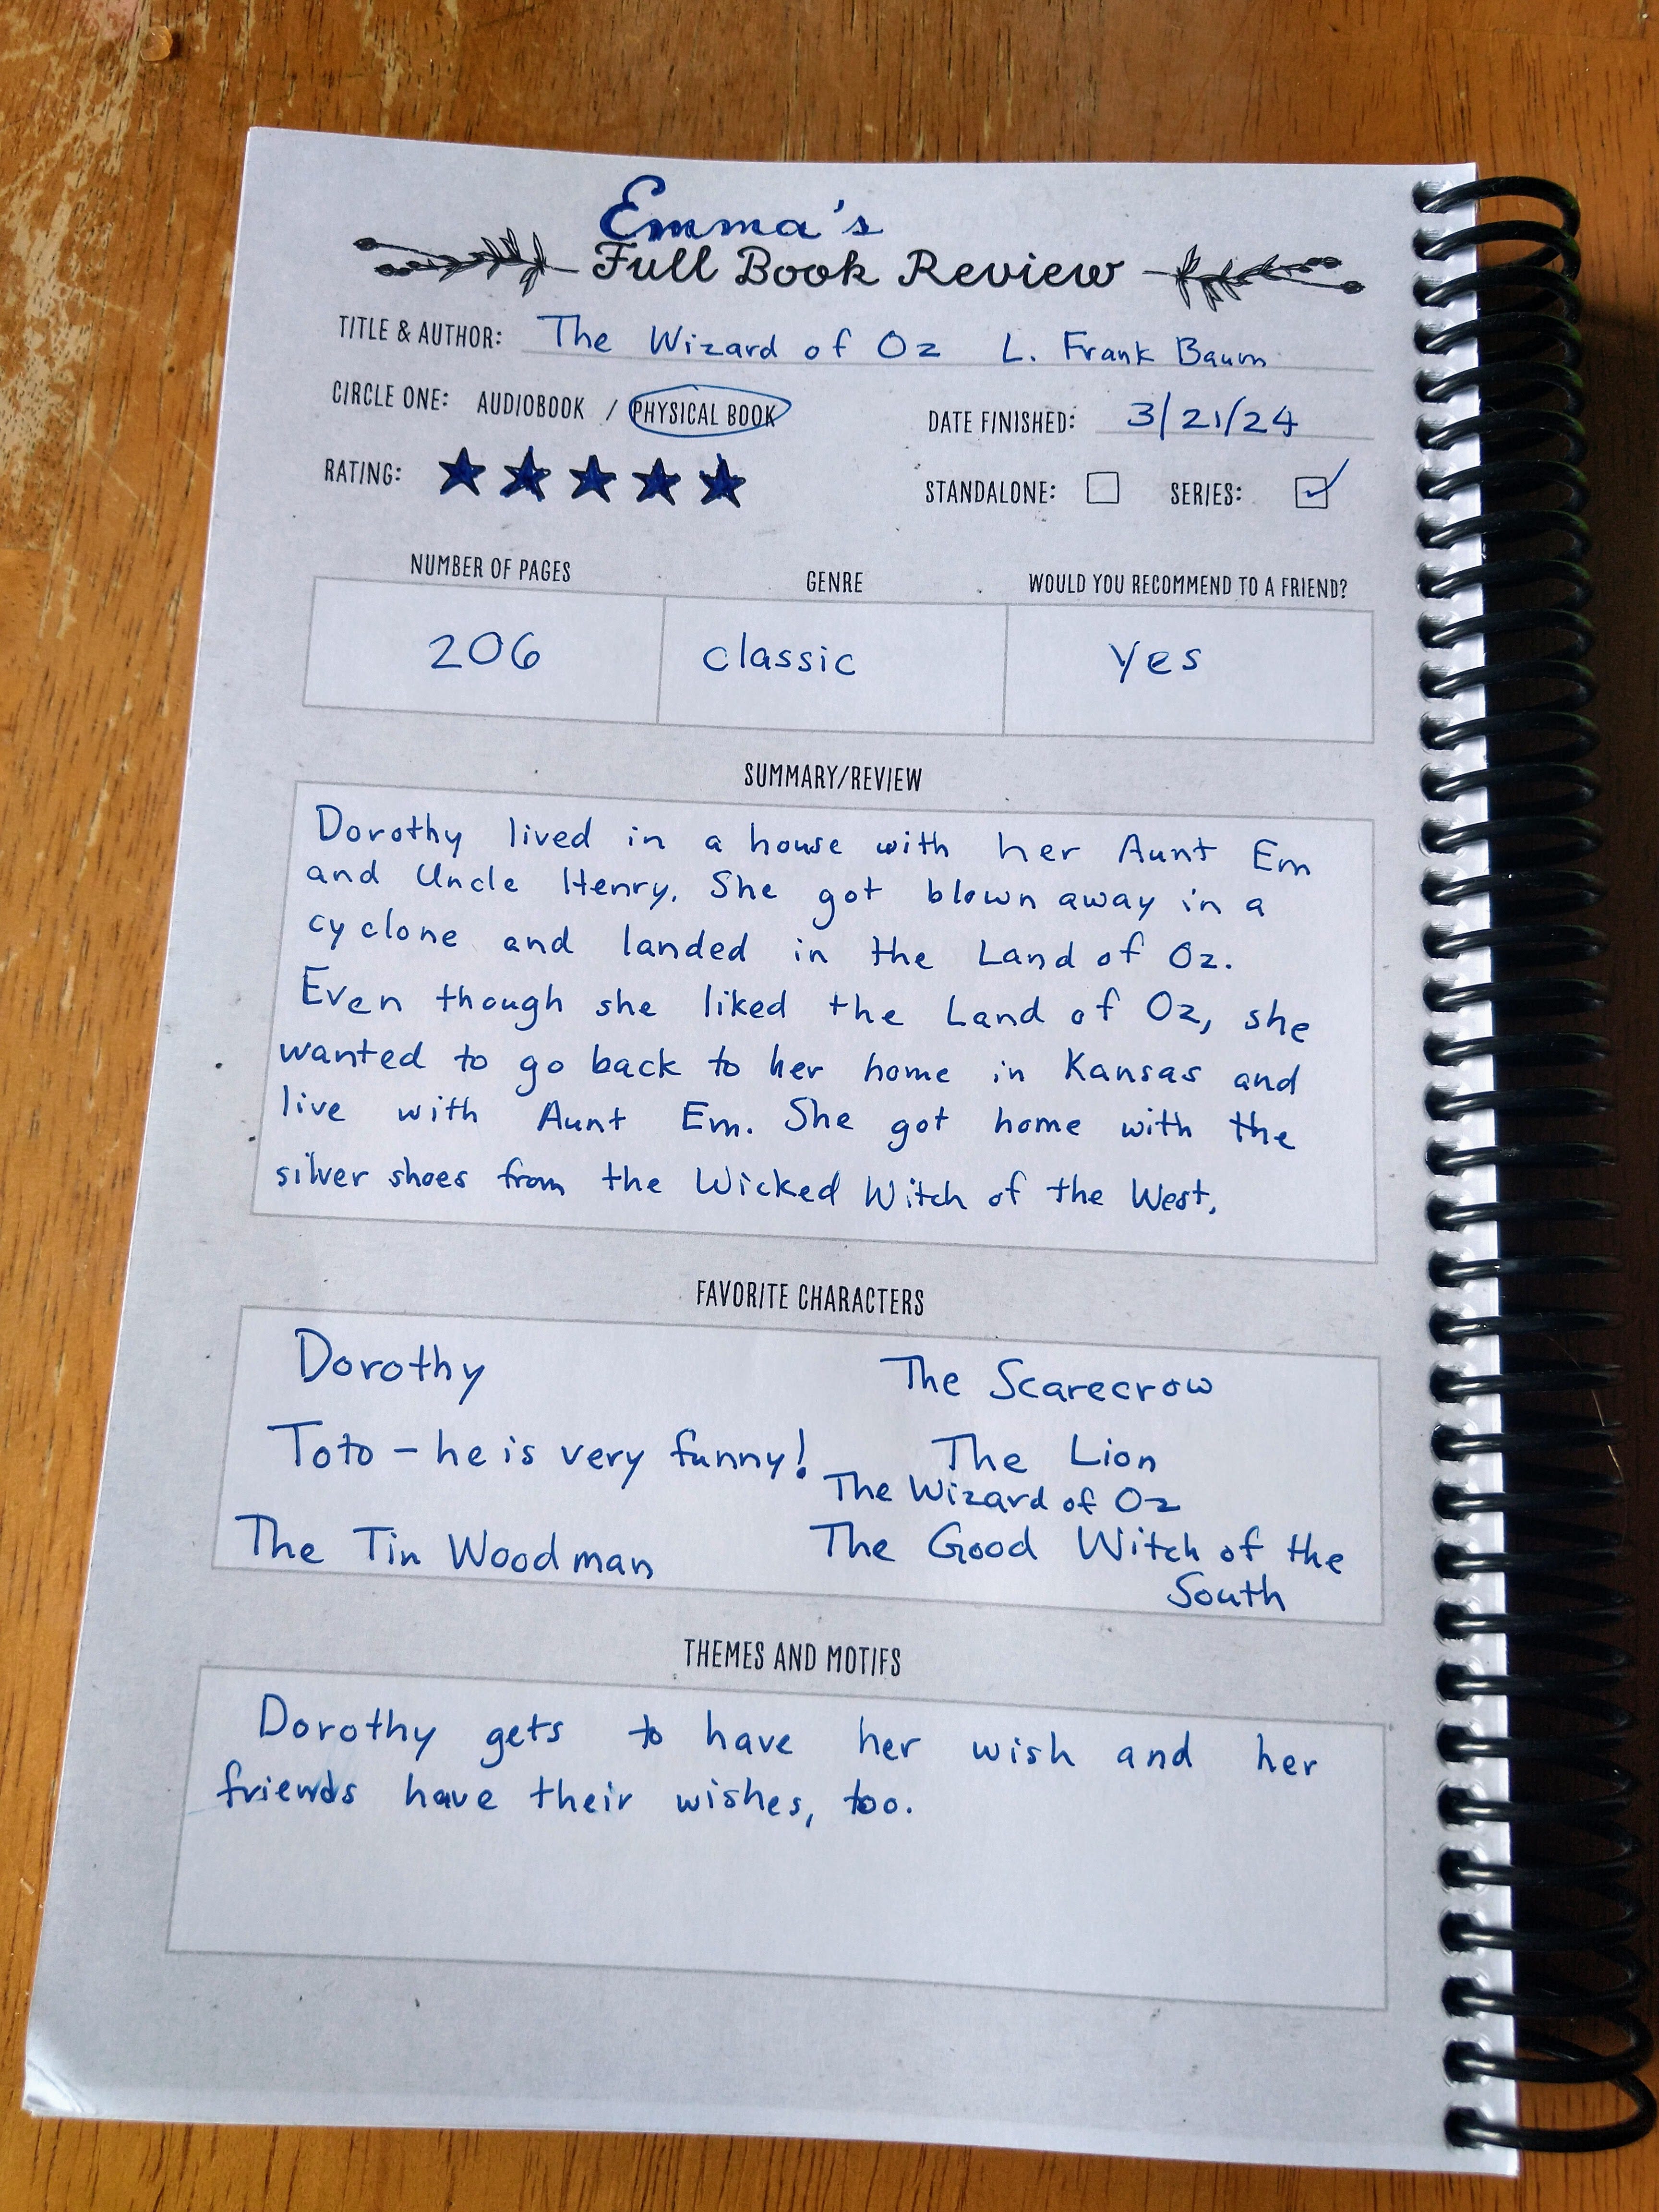 Emma's
Full Book Review
TITLE & AUTHOR: The Wizard of Oz L. Frank Baum
CIRCLE ONE: AUDIOBOOK / PHYSICAL BOOK
DATE FINISHED: 3/21/24
RATING:
STANDALONE: SERIES:
NUMBER OF PAGES
GENRE
WOULD YOU RECOMMEND TO A FRIEND?
206
classic
Yes
SUMMARY/REVIEW
Dorothy lived in a house with her Aunt Em
and Uncle Henry. She got blown away in a
cyclone and landed in the Land of Oz.
Even though she liked the Land of Oz, she
wanted to go back to her home in Kansas and
live with Aunt Em. She got home with the
silver shoes from the Wicked Witch of the West.
FAVORITE CHARACTERS
Dorothy
The Scarecrow
Toto - he is very funny!
The Lion
The Wizard of Oz
The Tin Woodman
The Good Witch of the
South
THEMES AND MOTIFS
Dorothy gets to have her wish and her
friends have their wishes, too.